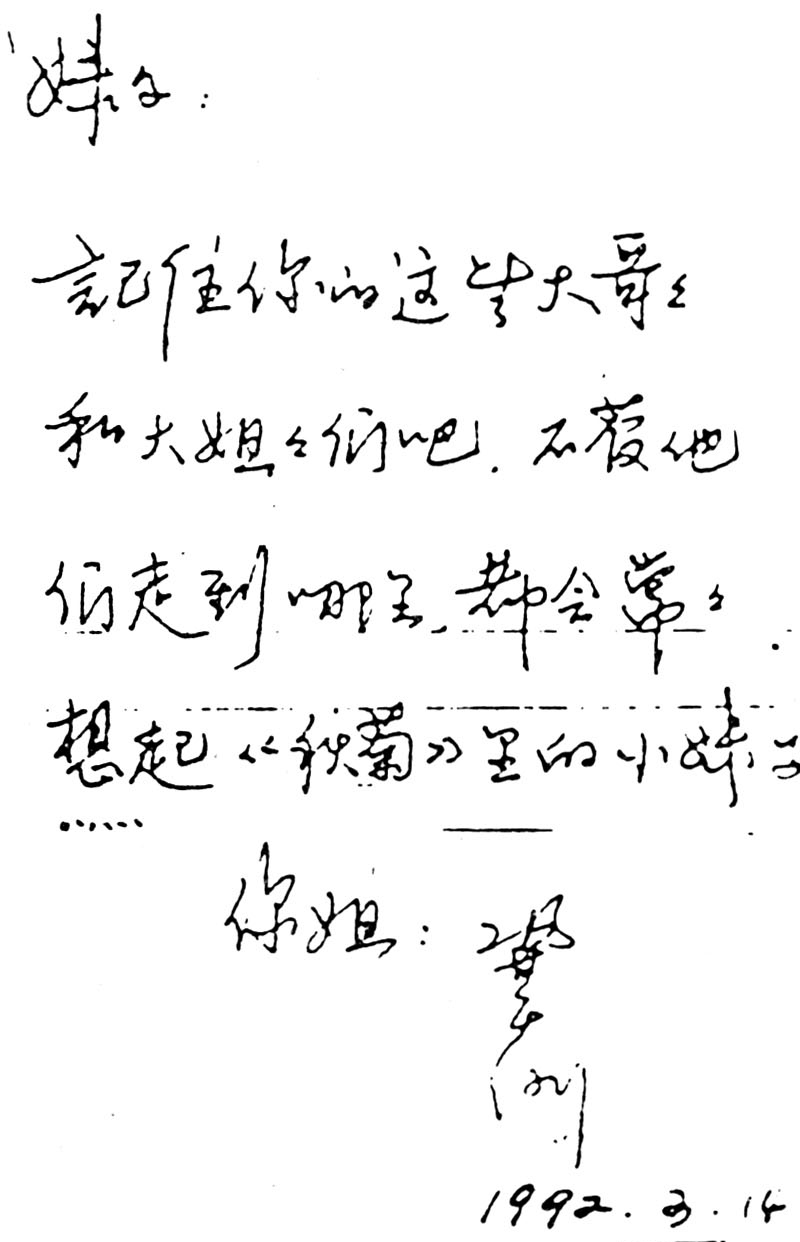 妹子：
記住你的这些大哥々
和大姐々们吧. 不管他
们走到哪里, 都会常々
想起《秋菊》里的小妹子
……
你姐：鞏
俐
1992.3.14